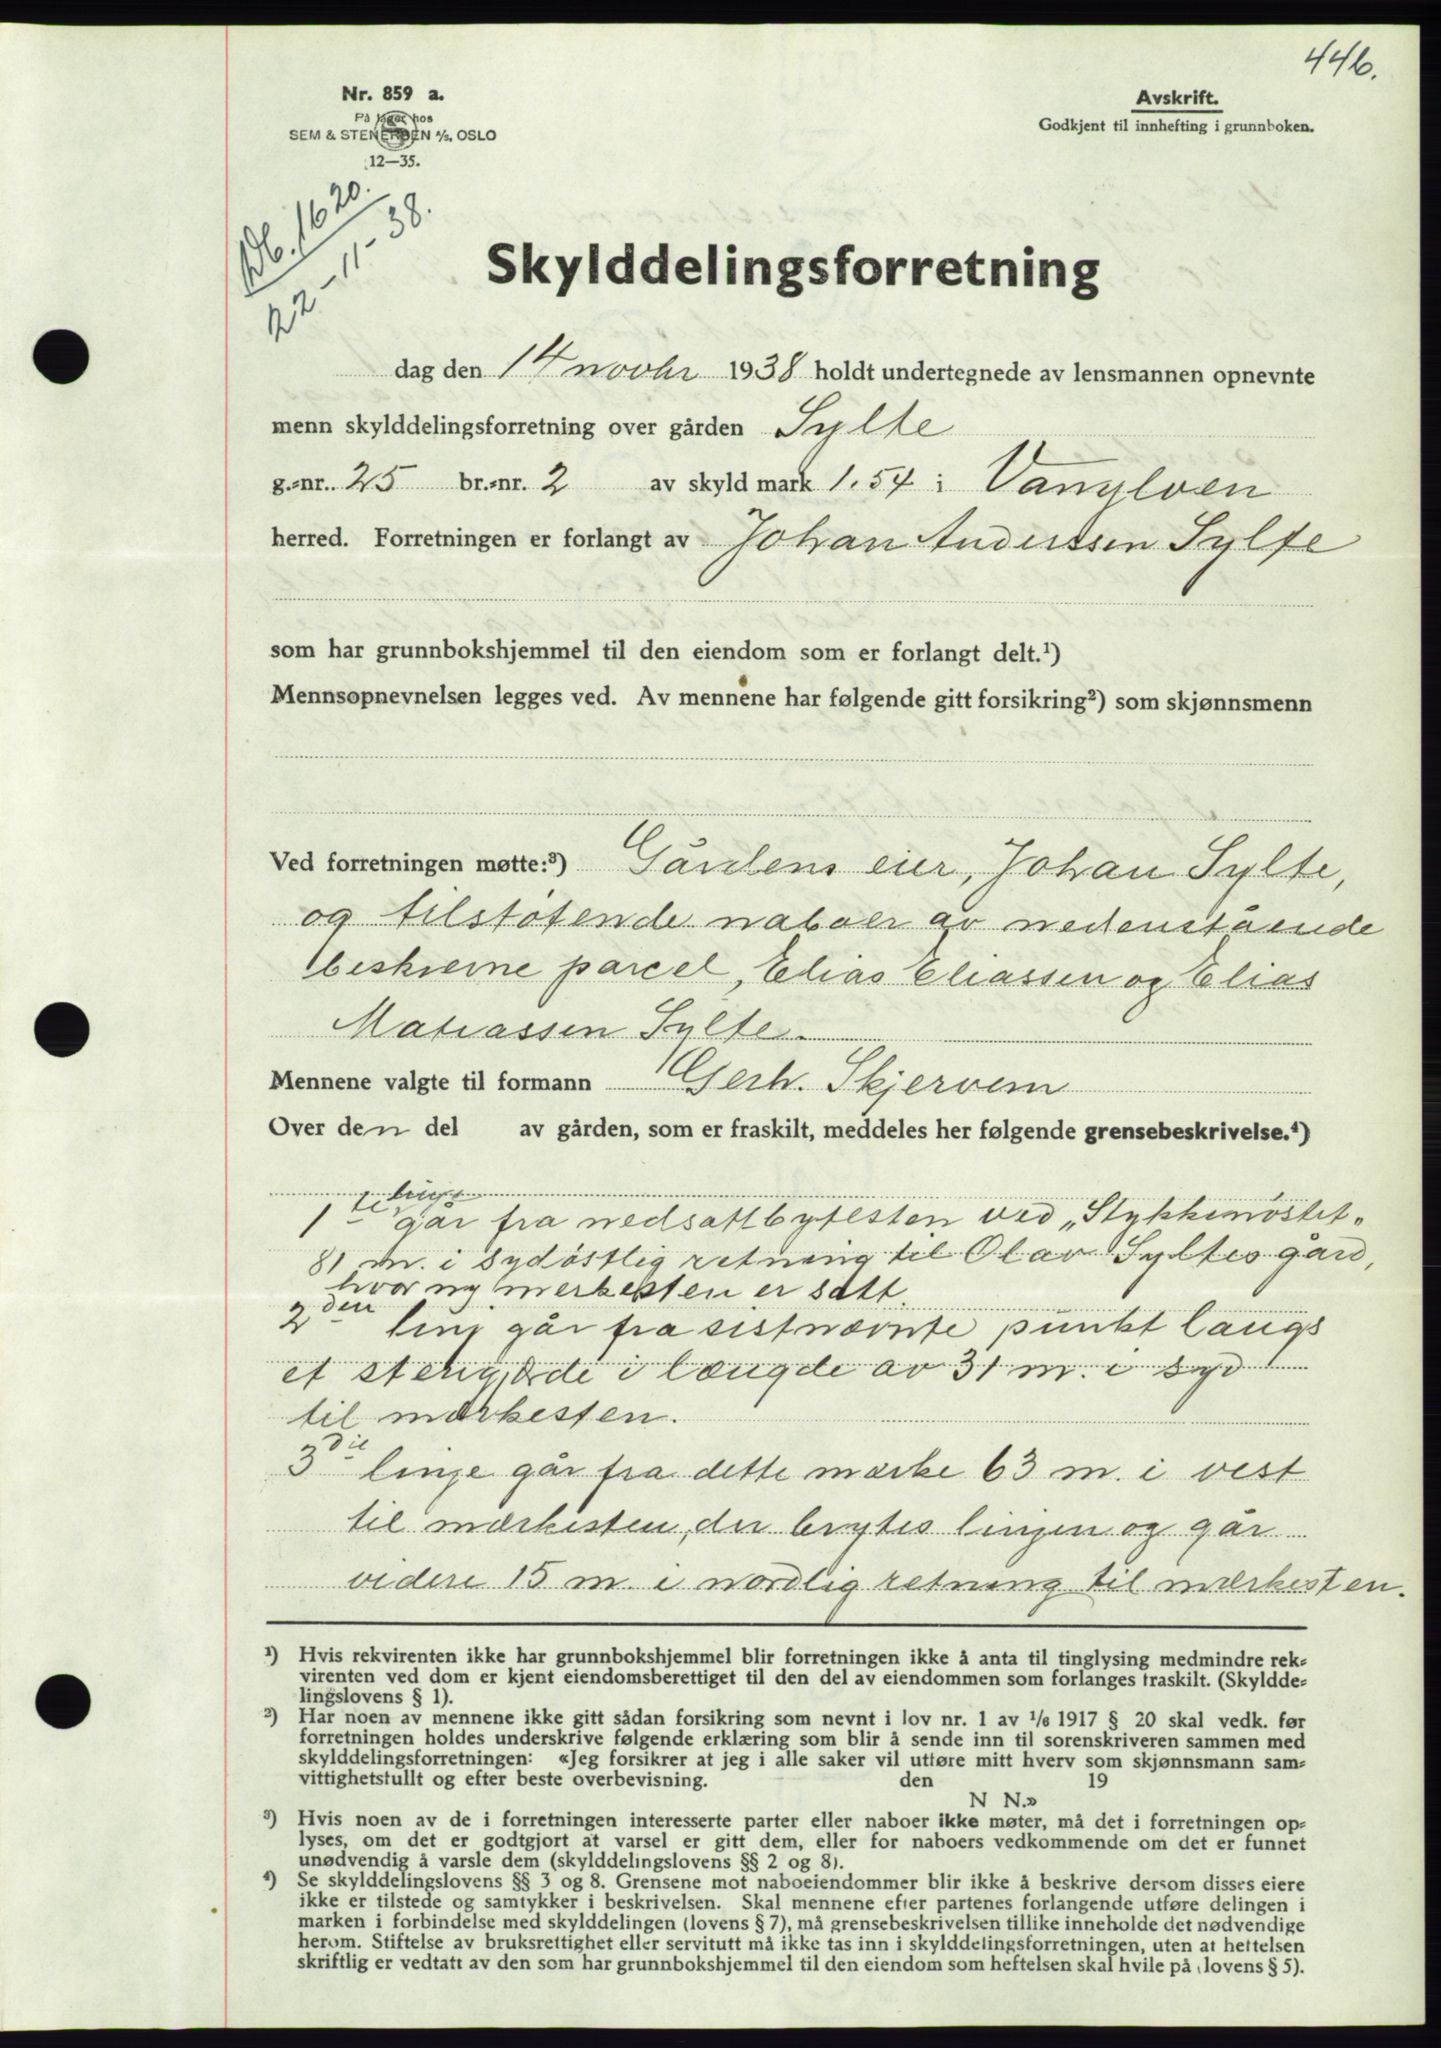 446.
Nr. 859 a.
På lager hos
SEM & STENERSEN A/S, OSLO
12—35.
Avskrift.
Godkjent til innhefting i grunnboken.
Db. 1620.
22-11-38.
Skylddelingsforretning
dag den 14 novbr 1938 holdt undertegnede av lensmannen opnevnte
menn skylddelingsforretning over gården Sylte
g.=nr. 25 br.=nr. 2 av skyld mark 1.54 i Vanylven
herred. Forretningen er forlangt av Johan Anderssen Sylte
som har grunnbokshjemmel til den eiendom som er forlangt delt.¹)
Mennsopnevnelsen legges ved. Av mennene har følgende gitt forsikring²) som skjønnsmenn
Ved forretningen møtte:³) Gårdens eier, Johan Sylte,
og tilstøtende naboer av nedenstående
beskrevne parcel, Elias Eliassen og Elias
Matiassen Sylte.
Mennene valgte til formann Gerh. Skjervem
Over den del av gården, som er fraskilt, meddeles her følgende grensebeskrivelse.⁴)
1te linje går fra nedsatt bytesten ved „Stykkenøstet„
81 m. i sydøstlig retning til Olav Syltes gård,
hvor ny merkesten er satt.
2den linj går fra sistnævnte punkt langs
et stengjærde i længde av 31 m. i syd
til mærkesten.
3die linje går fra dette mærke 63 m. i vest
til mærkesten, der brytes linjen og går
videre 15 m. i nordlig retning til mærkesten.
¹) Hvis rekvirenten ikke har grunnbokshjemmel blir forretningen ikke å anta til tinglysing medmindre rek=
virenten ved dom er kjent eiendomsberettiget til den del av eiendommen som forlanges fraskilt. (Skyldde=
lingslovens § 1).
²) Har noen av mennene ikke gitt sådan forsikring som nevnt i lov nr. 1 av 1/6 1917 § 20 skal vedk. før
forretningen holdes underskrive følgende erklæring som blir å sende inn til sorenskriveren sammen med
skylddelingsforretningen: «Jeg forsikrer at jeg i alle saker vil utføre mitt hverv som skjønnsmann sam=
vittighetsfullt og efter beste overbevisning. den 19
N N.»
³) Hvis noen av de i forretningen interesserte parter eller naboer ikke møter, må det i forretningen op=
lyses, om det er godtgjort at varsel er gitt dem, eller for naboers vedkommende om det er funnet
unødvendig å varsle dem (skylddelingslovens §§ 2 og 8).
⁴) Se skylddelingslovens §§ 3 og 8. Grensene mot naboeiendommer blir ikke å beskrive dersom disses eiere
ikke er tilstede og samtykker i beskrivelsen. Skal mennene efter partenes forlangende utføre delingen i
marken i forbindelse med skylddelingen (lovens § 7), må grensebeskrivelsen tillike inneholde det nødvendige
herom. Stiftelse av bruksrettighet eller servitutt må ikke tas inn i skylddelingsforretningen, uten at heftelsen
skriftlig er vedtatt av den som har grunnbokshjemmel til den eiendom som heftelsen skal hvile på (lovens § 5).